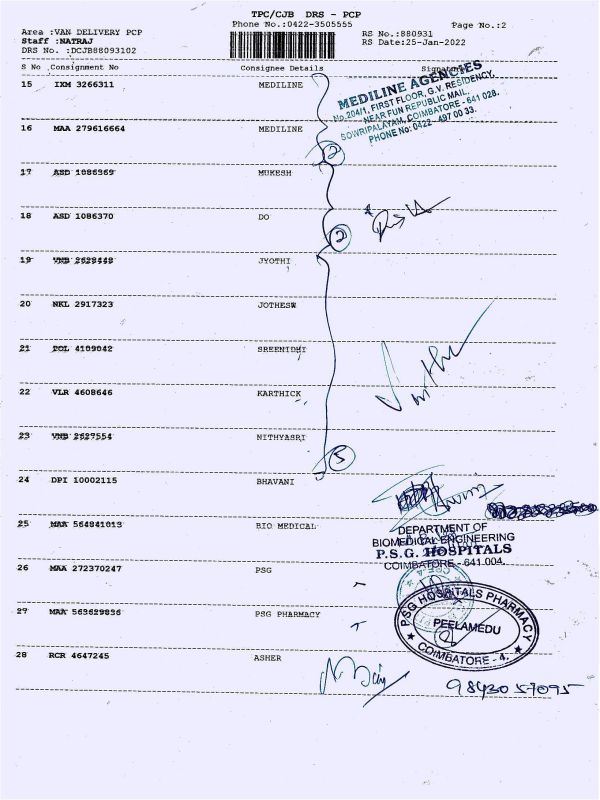 TPC/CJB DRS - PCP
Phone No.:0422-3505555
Page No.:2
Area :VAN DELIVERY PCP
Staff :NATRAJ
DRS No. :DCJB88093102
RS No.:880931
RS Date:25-Jan-2022
S No Consignment No Consignee Details Signature
15 IXM 3266311 MEDILINE
MEDILINE AGENCIES
No.204/1, FIRST FLOOR, G.V. RESIDENCY,
NEAR FUN REPUBLIC MAIL,
SOWRIPALAYAM, COIMBATORE - 641 028.
PHONE No: 0422 497 00 33.
16 MAA 279616664 MEDILINE
2
17 ASD 1086369 MUKESH
18 ASD 1086370 DO
2
19 VMB 2628448 JYOTHI
20 NKL 2917323 JOTHESW
21 POL 4109042 SREENIDHI
22 VLR 4608646 KARTHICK
23 VMB 2627554 NITHYASRI
5
24 DPI 10002115 BHAVANI
25 MAA 564841013 BIO MEDICAL
DEPARTMENT OF
BIOMEDICAL ENGINEERING
P.S.G. HOSPITALS
COIMBATORE - 641 004.
26 MAA 272370247 PSG
27 MAA 563629836 PSG PHARMACY
PSG HOSPITALS PHARMACY
PEELAMEDU
COIMBATORE - 4.
28 RCR 4647245 ASHER
9843057095